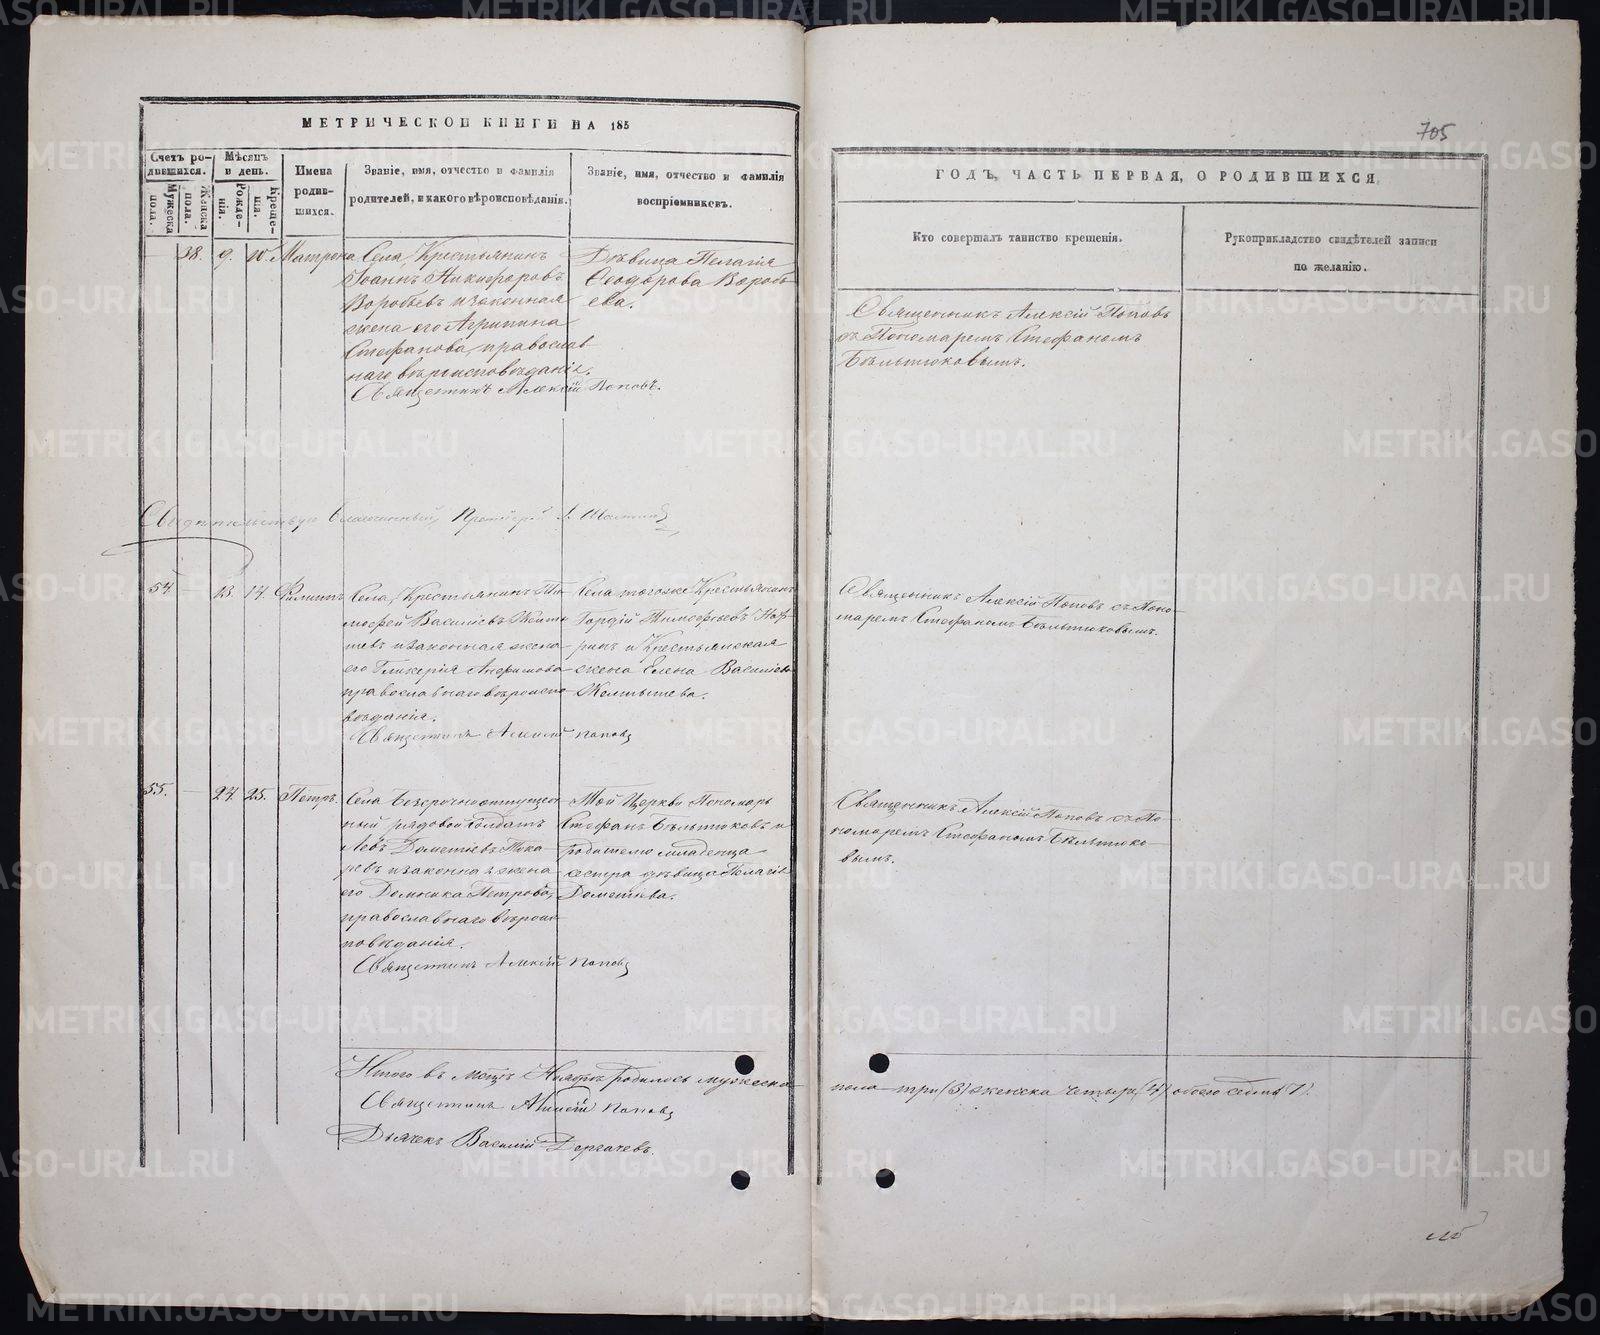 МЕТРИЧЕСКОЙ КНИГИ НА 185
Счетъ ро-
дившихся.
Мужеска
пола.
Женска
пола.
Мѣсяцъ
и день.
Рожде-
нія.
Креще-
нія.
Имена
родив-
шихся.
Званіе, имя, отчество и фамилія
родителей, и какого вѣроисповѣданія.
Званіе, имя, отчество и фамилія
воспріемниковъ.
38. 9. 10. Матрона
Села, Крестьянинъ
Іоаннъ Никифоровъ
Воробьевъ и законная
жена его Агрипина
Стефанова, православ
наго вѣроисповѣданія.
Священникъ Алексій Поповъ.
Дѣвица Пелагія
Ѳеодорова Воробь
ева.
Свидѣтельствую Благочинный, Протоіерей
54. — 13. 14. Филиппъ
Села, Крестьянинъ Ти
моѳей Василіевъ Желты
шевъ и законная жена
его Гликерія Анфимова
православнаго вѣроиспо
вѣданія.
Священникъ Алексій Поповъ
Села тогоже Крестьянинъ
Гордій Тимоѳеевъ
и Крестьянская
жена Елена Василіева
Желтышева.
55. — 24. 25. Петръ.
Села Безсрочноотпущен
ный рядовой Солдатъ
Левъ Дометіевъ Тока
ревъ и законная жена
его Домника Петрова,
православнаго вѣроис
повѣданія.
Священникъ Алексій Поповъ
Той Церкви Пономарь
Стефанъ Бѣльтюковъ и
родителю младенца
сестра дѣвица Пелагія
Дометіева.
Итого въ Ноябрѣ родилось мужеска
Священникъ Алексій Поповъ
Дьячекъ Василій Дергачевъ.
705
ГОДЪ, ЧАСТЬ ПЕРВАЯ, О РОДИВШИХСЯ.
Кто совершалъ таинство крещенія.
Рукоприкладство свидѣтелей записи
по желанію.
Священникъ Алексій Поповъ
съ Пономаремъ Стефаномъ
Бѣльтюковымъ.
Священникъ Алексій Поповъ съ Поно
маремъ Стефаномъ Бѣльтюковымъ.
Священникъ Алексій Поповъ съ По
номаремъ Стефаномъ Бѣльтюко
вымъ.
пола три (3) женска четыре (4) обоего семь (7).
METRIKI.GASO-URAL.RU